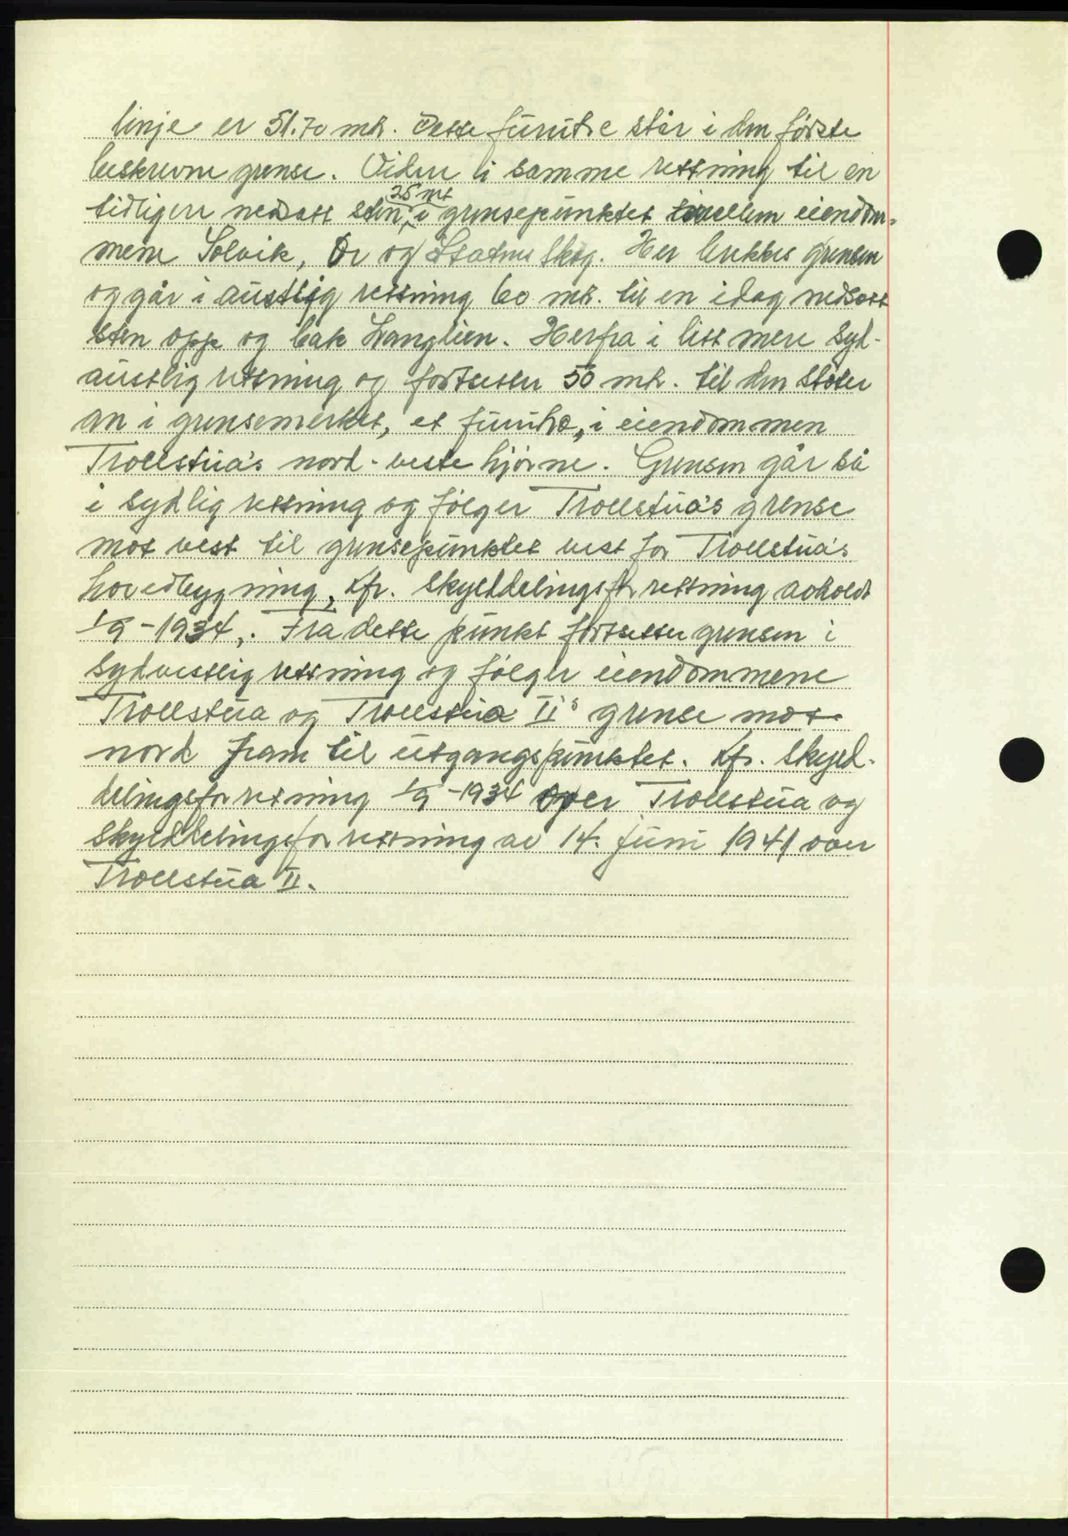 linje er 51.70 mtr. Dette furutre står i den første
beskrevne grense. Videre i samme rettning til en
tidligere nedsatt sten, 25 mt i grensepunktet imellem eiendom-
mene Solvik, Ør og skog. Her brekkes grensen
og går i austlig rettning 60 mtr. til en idag nedsatt
sten opp og bak Langlien. Herfra i litt mere syd-
austlig rettning og fortsetter 50 mtr. til den støter
an i grensemerket, et furutre, i eiendommen
Trollstua's nord-veste hjørne. Grensen går så
i sydlig rettning og følger Trollstua's grense
mot vest til grensepunktet vest for Trollstua's
hovedbygning, kfr. skylddelingsforrettning avholdt
1/9-1934,. Fra dette punkt fortsetter grensen i
sydvestlig rettning og følger eiendommene
Trollstua og Trollstua II's grense mot
nord fram til utgangspunktet. kfr. skyld-
delingsforretning 1/9-1934 over Trollstua og
skylddelingsforrettning av 14. juni 1941 over
Trollstua II.